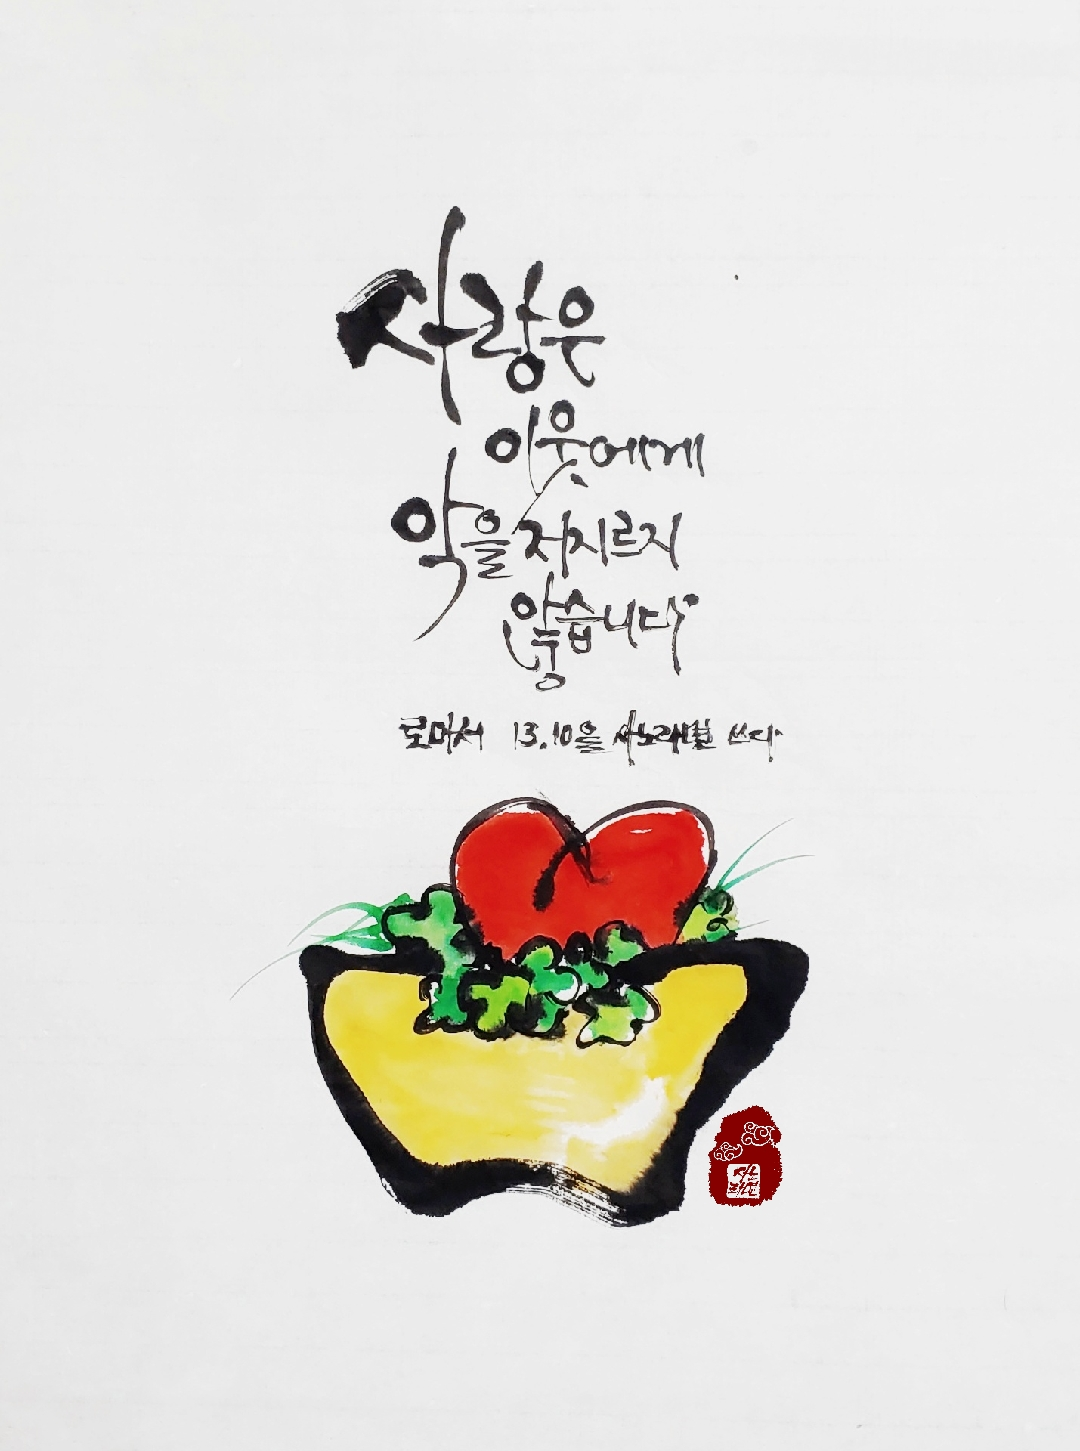 사랑은
이웃에게
악을 저지르지
않습니다
로마서 13.10을 쓰다